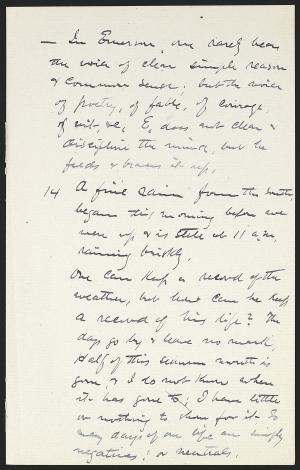 — In Emerson, one rarely hears
the voice of clear simple reason
& common sense; but the voice
of poetry, of fable, of courage,
of wit, &c, E. does not clear &
discipline the mind, but he
feeds & braces it up.
14 A fine rain from the south,
began this morning before we
were up & is still at 11 a.m.
raining briskly.
One can keep a record of the
weather, but how can he keep
a record of his life? The
days go by & leave no mark,
Half of this summer month is
gone, & I do not know where
it has gone to; I have little
or nothing to show for it. So
many days of our life are simply
negatives; or neutrals.